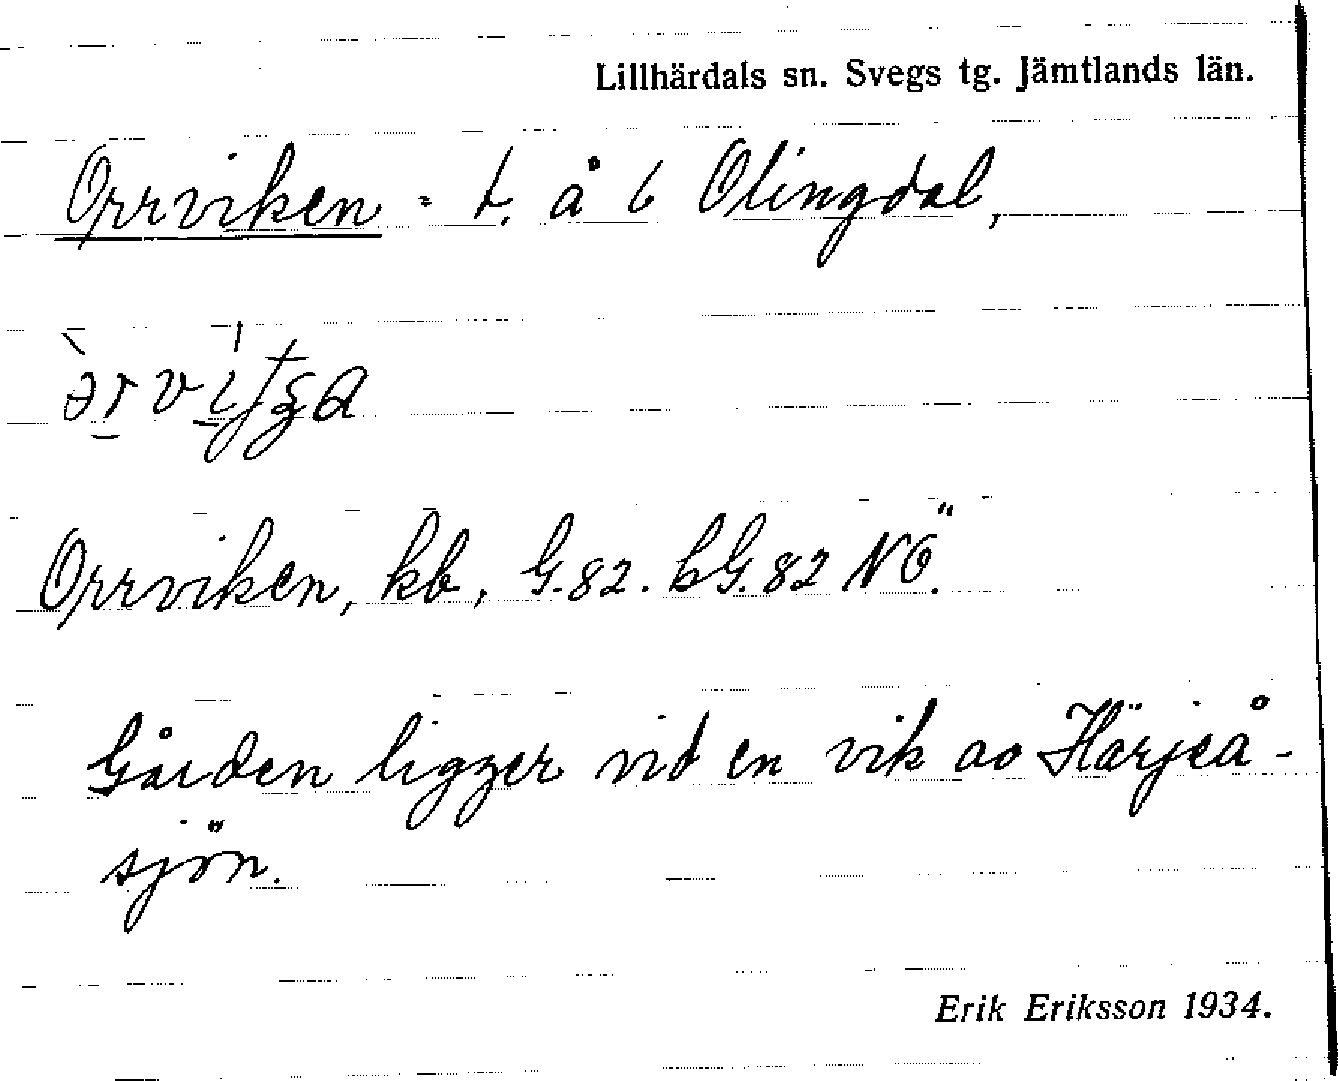 Lillhärdals sn. Svegs tg. Jämtlands län.
Orrviken = t. å 6 Olingdal,
Orrviken, kb, G.82. bG.82 NÖ.
Gården ligger vid en vik av Härjeå-
sjön.
Erik Eriksson 1934.